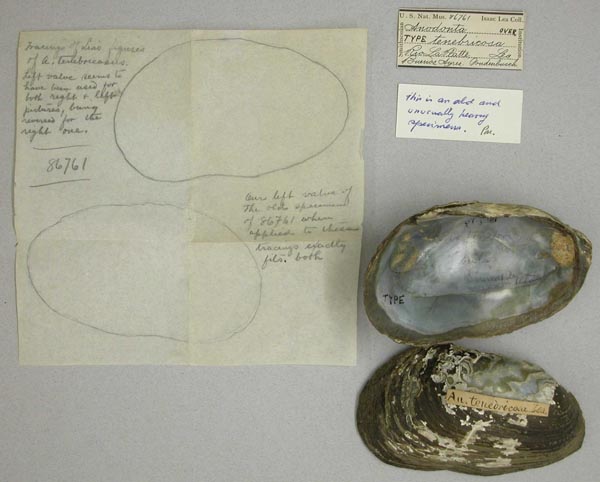 Tracings of Lea's figures
of A. tenebricosus.
Left valve seems to
have been used for
both right & left
pictures, being
reversed for the
right one.
86761
Our left valve of
the older specimen
of 86761 when
applied to these
tracings exactly
fits both
U. S. Nat. Mus. 86761 Isaac Lea Coll.
Anodonta OVER
TYPE tenebricosa
Rio La Plata Lea
Buenos Ayres.
this is an old and
unusually heavy
specimen.
TYPE
An. tenebricosa Lea